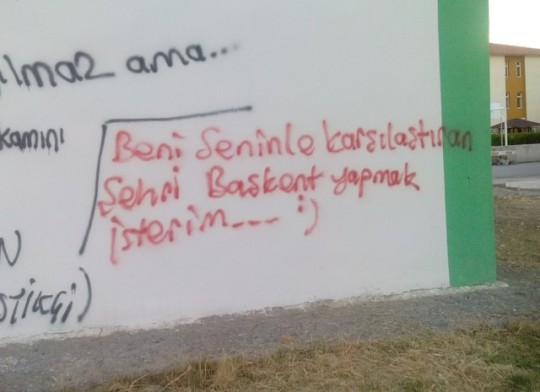 ılmaz ama...
kamını
Beni Seninle karşılaştıran
Şehri Başkent yapmak
isterim.... :)
N
STİKÇİ)